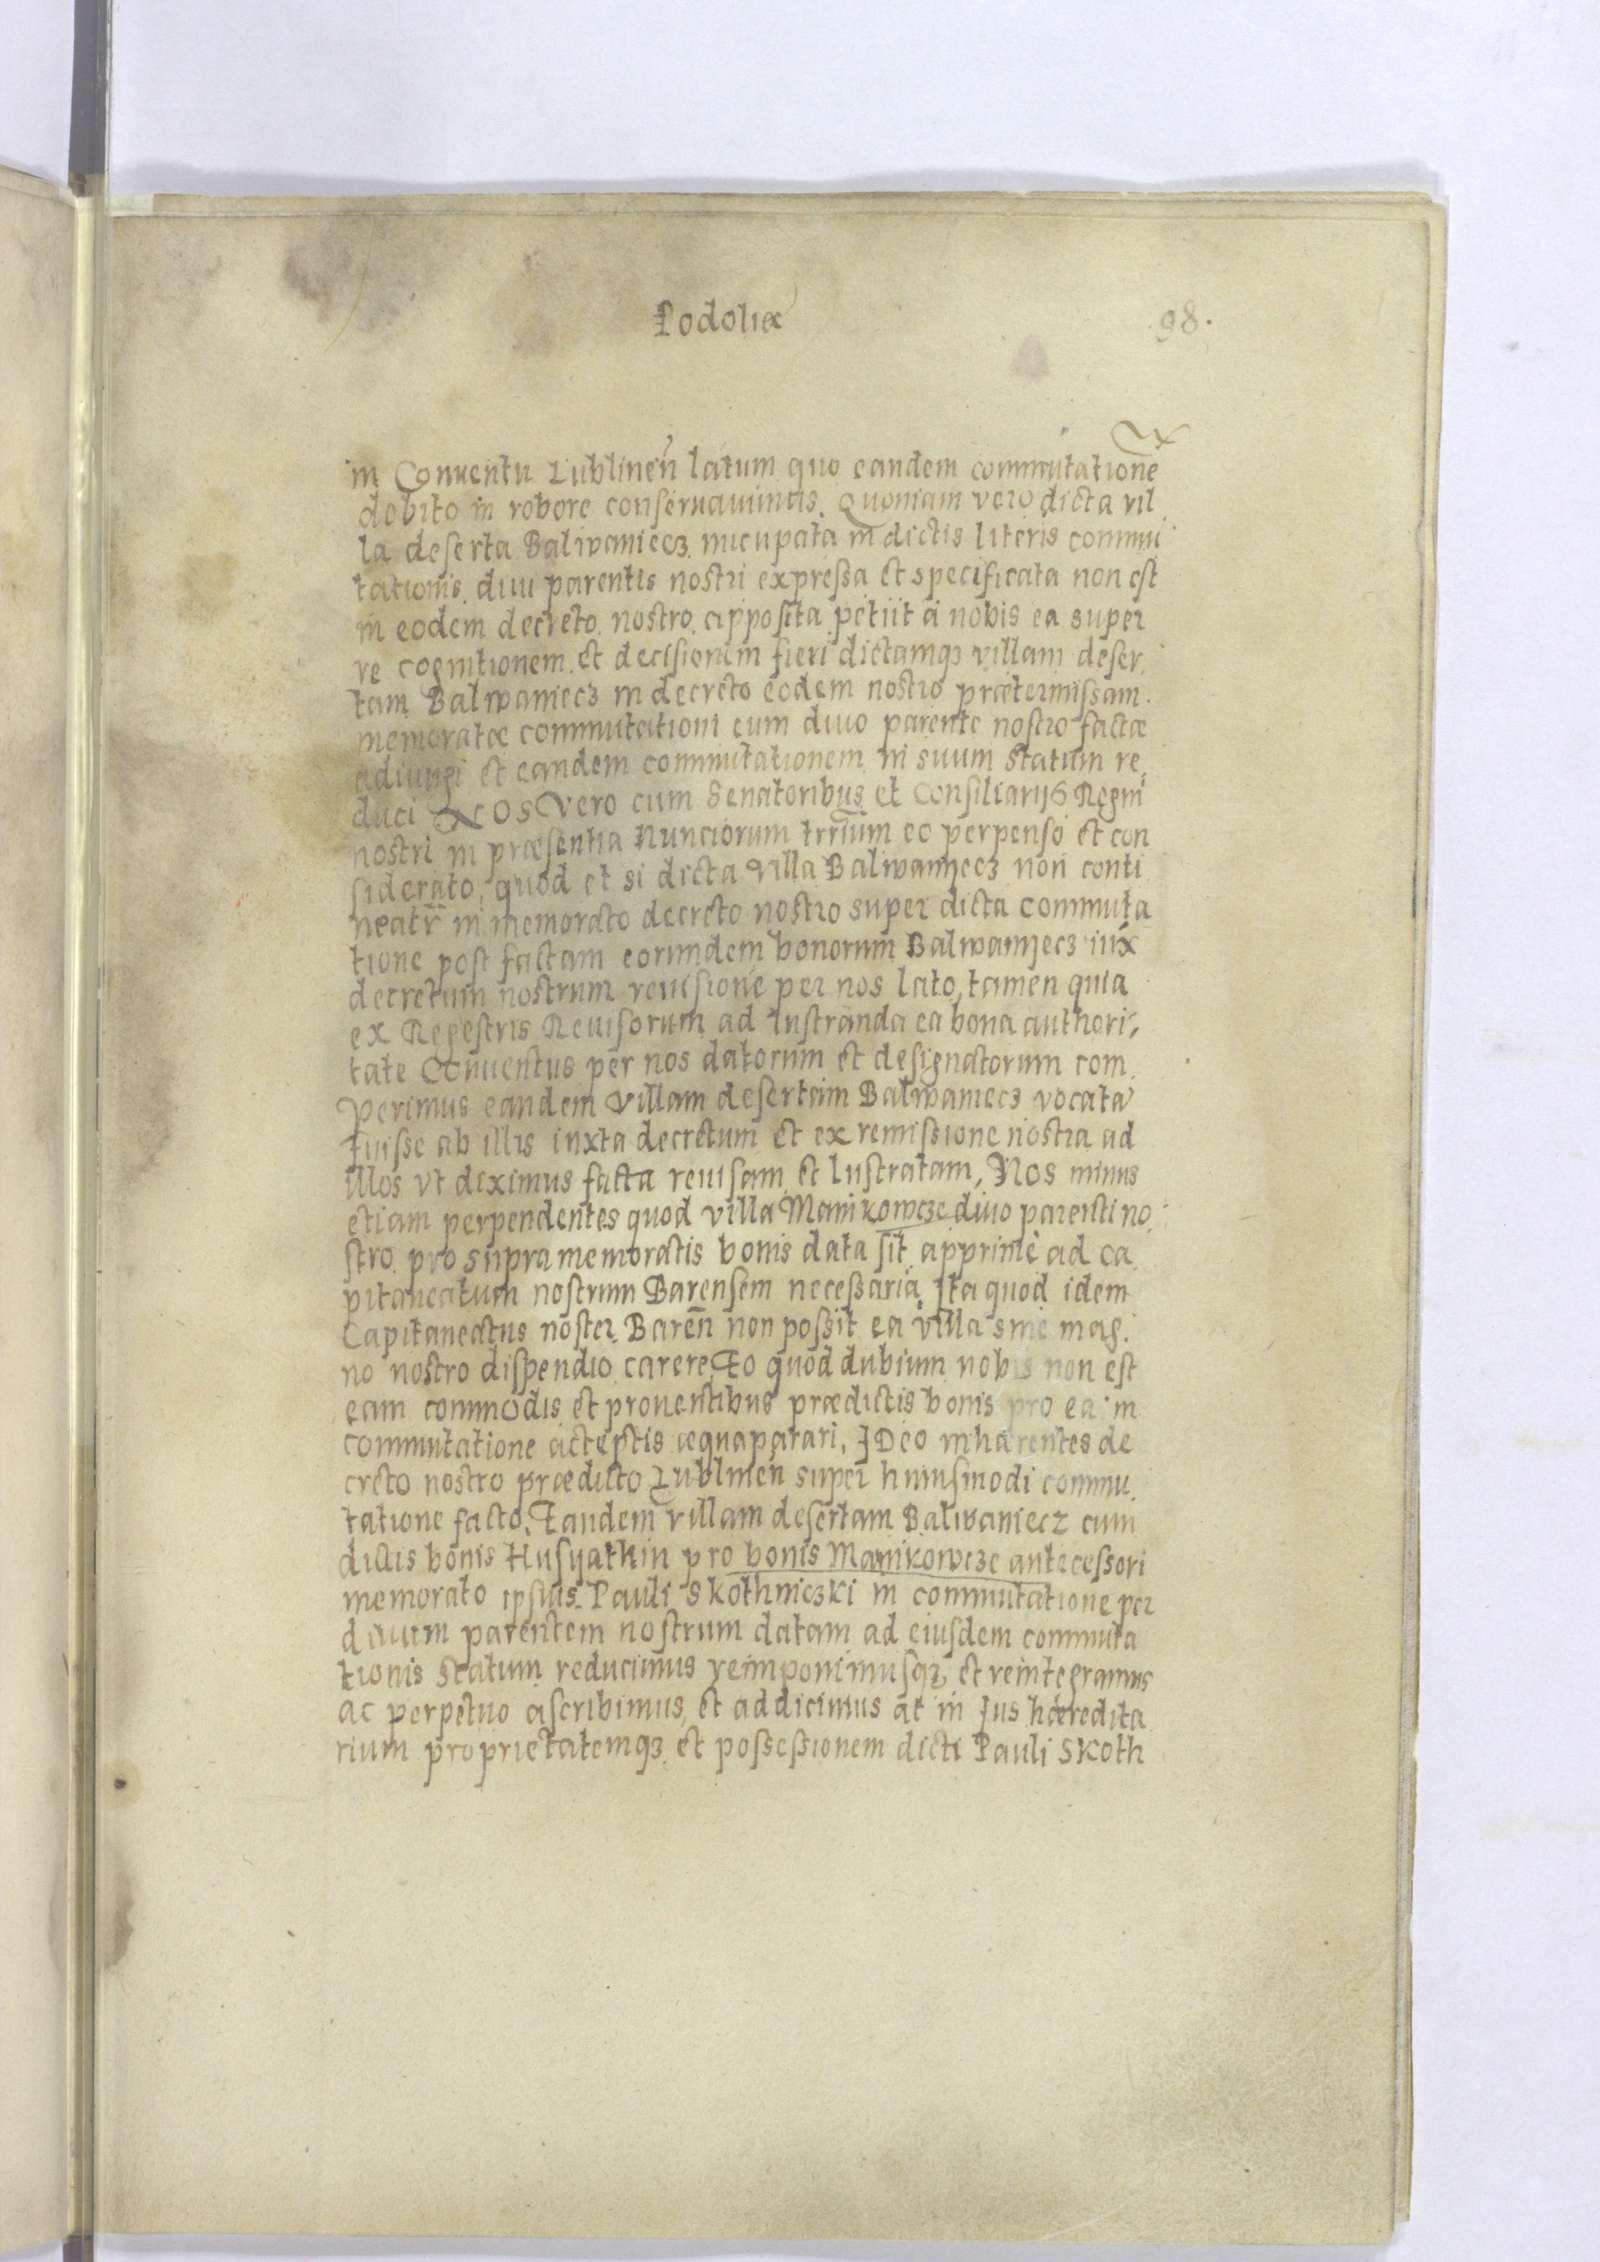 Podoliæ
98.
in Conuentu Lublineñ latum quo eandem commutatione
debito in robore conseruauimus. Quoniam vero dicta vil
la deserta Balwaniecz nucupata in dictis literis commu
tationis diui parentis nostri expressa et specificata non est
in eodem decreto nostro apposita petiit a nobis ea super
re cognitionem et decisionem fieri dictamqꝫ villam deser
tam Balwaniecz in decreto eodem nostro prætermissam
memoratæ commutationi cum diuo parente nostro factæ
adiungi et eandem commutationem in suum statum re
duci Nos Vero cum Senatoribus et Consiliarijs Regni
nostri in præsentia Nunciorum trrium eo perpenso et con
siderato, quod et si dicta villa Balwaniecz non conti
neatr in memorato decreto nostro super dicta commuta
tione post factam eorundem bonorum Balwaniecz iux
decretum nostrum reuisione per nos lato, tamen quia
ex Regestris Reuisorum ad lustranda ea bona authori,
tate Conuentus per nos datorum et designatorum com
perimus eandem villam desertam Balwaniecz vocata
fuisse ab illis iuxta decretum et ex remissione nostra ad
illos vt diximus facta reuisam et lustratam, Nos minus
etiam perpendentes quod villa Manikowcze diuo parenti no
stro pro supra memoratis bonis data sit apprime ad ca
pitaneatum nostrum Barensem necessaria, Ita quod idem
Capitaneatus noster Bareñ non possit ea villa sine mag
no nostro dispendio carere, Eo quod dubium nobis non est
eam commodis et prouentibus prædictis bonis pro ea in
commutatione acceptis æquaparari, IDeo inhærentes de
creto nostro prædicto Lublineñ super huiusmodi commu
tatione facto, Eandem villam desertam Balwaniecz cum
dictis bonis Husyathin pro bonis Manikowcze antecessori
memorato ipsius Pauli Skothniczki in commutatione per
diuum parentem nostrum datam ad eiusdem commuta
tionis statum reducimus reimponimusqꝫ et reintegramus
ac perpetuo ascribimus et addicimus ac in Jus hæredita
rium proprietatemqꝫ et possessionem dicti Pauli Skoth